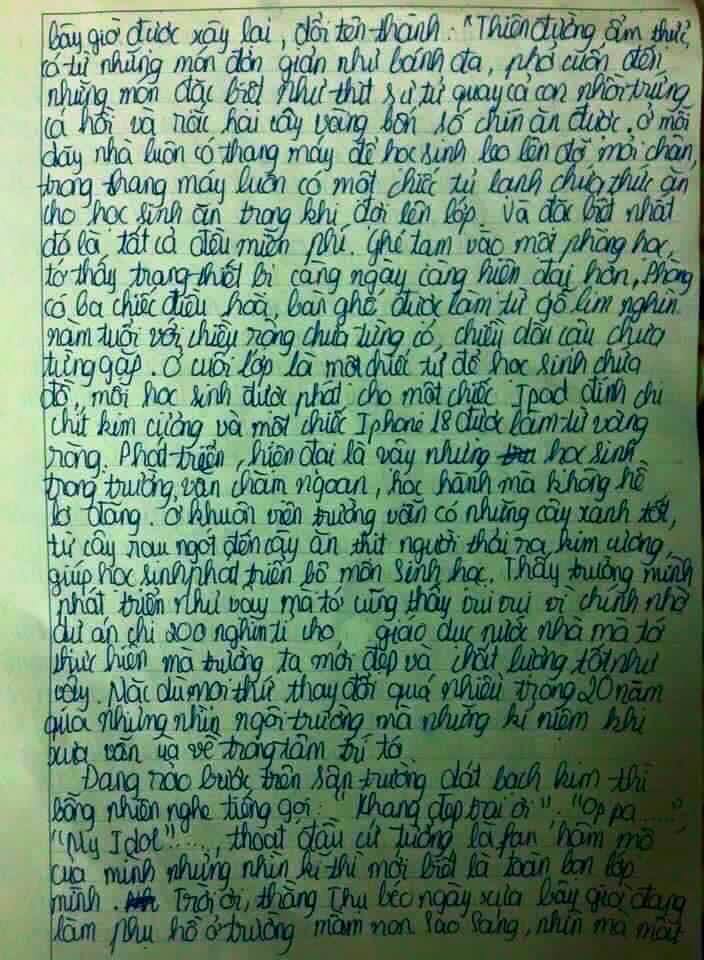 bây giờ được xây lại, đổi tên thành: "Thiên đường ẩm thực,
có từ những món đơn giản như bánh đa, phở cuốn đến
những món đặc biệt như thịt sư tử quay cả con nhồi trứng
cá hồi và rắc hai cây vàng bốn số chín ăn được. Ở mỗi
dãy nhà luôn có thang máy để học sinh leo lên đỡ mỏi chân,
trong thang máy luôn có một chiếc tủ lạnh chứa thức ăn
cho học sinh ăn trong khi đợi lên lớp. Và đặc biệt nhất
đó là tất cả đều miễn phí. Ghé tạm vào một phòng học,
tớ thấy trang thiết bị càng ngày càng hiện đại hơn, Phòng
có ba chiếc điều hoà, bàn ghế được làm từ gỗ lim nghìn
năm tuổi với chiều rộng chưa từng có, chiều dài cầu chưa
từng gặp. Ở cuối lớp là một chiếc tủ để học sinh chứa
đồ, mỗi học sinh được phát cho một chiếc Ipod đính chi
chít kim cương và một chiếc Iphone 18 được làm từ vàng
ròng. Phát triển, hiện đại là vậy nhưng học sinh
trong trường vẫn chăm ngoan, học hành mà không hề
lơ đãng. Ở khuôn viên trường vẫn có những cây xanh tốt,
từ cây rau ngót đến cây ăn thịt người thải ra kim cương,
giúp học sinh phát triển bộ môn Sinh học. Thấy trường mình
phát triển như vậy mà tớ cũng thấy vui vui vì chính nhờ
dự án chi 200 nghìn tỉ cho giáo dục nước nhà mà tớ
thực hiện mà trường ta mới đẹp và chất lượng tốt như
vậy. Mặc dù mọi thứ thay đổi quá nhiều trong 20 năm
qua nhưng nhìn ngôi trường mà những kỉ niệm khi
xưa vẫn ùa về trong tâm trí tớ.
Đang rảo bước trên sân trường dát bạch kim thì
bỗng nhiên nghe tiếng gọi: "Khang đẹp trai ơi". "Oppa.....",
"My Idol"....., thoạt đầu cứ tưởng là fan hâm mộ
của mình nhưng nhìn kĩ thì mới biết là toàn bọn lớp
mình. Trời ơi, thằng Thụ béo ngày xưa bây giờ đang
làm phụ hồ ở trường mầm non Sao Sáng, nhìn mà